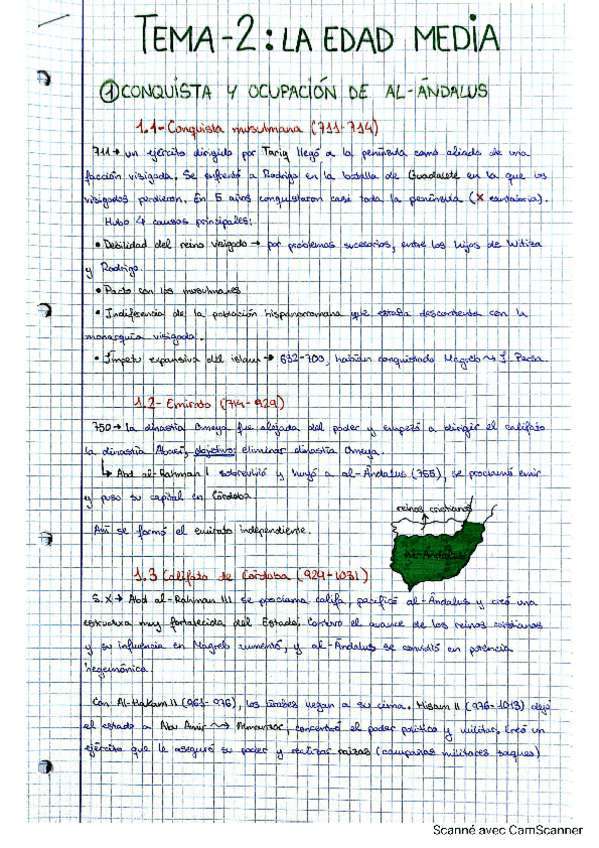 TEMA-2: LA EDAD MEDIA
① CONQUISTA Y OCUPACIÓN DE AL-ÁNDALUS
1.1- Conquista musulmana (711-714)
711 → un ejército dirigido por Tariq llegó a la península como aliado de una
facción visigoda. Se enfrentó a Rodrigo en la batalla de Guadalete en la que los
visigodos perdieron. En 5 años conquistaron casi toda la península (x cantabria).
Hubo 4 causas principales:
• Debilidad del reino visigodo → por problemas sucesorios, entre los hijos de Witiza
y Rodrigo.
• Pacto con los musulmanes
• Indiferencia de la población hispanorromana que estaba descontenta con la
monarquía visigoda.
• Ímpetu expansivo del islam → 632-700, habían conquistado Magreb → I. Persa.
1.2- Emirato (714-929)
750 → la dinastía Omeya fue alejada del poder y empezó a dirigir el califato
la dinastía Abasí, objetivo: eliminar dinastía Omeya.
↳ Abd al-Rahman I sobrevivió y huyó a al-Ándalus (755), se proclamó emir
y puso su capital en Córdoba.
Así se formó el emirato independiente.
reinos cristianos
Al-Ándalus
1.3 Califato de Córdoba (929-1031)
S.X → Abd al-Rahman III se proclama califa, pacificó al-Ándalus y creó una
estructura muy fortalecida del Estado. Contuvo el avance de los reinos cristianos
y su influencia en Magreb aumentó, y al-Ándalus se convirtió en potencia
hegemónica.
Con Al-Hakam II (961-976), los árabes llegan a su cima. Hisam II (976-1013) dejó
el estado a Abu Amir → Almanzor, concentró el poder político y militar. Creó un
ejército que le aseguró su poder y realizar razias (campañas militares saqueo)
Scanné avec CamScanner